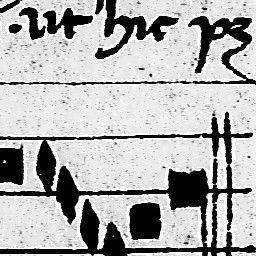 .ut hic pꝫ